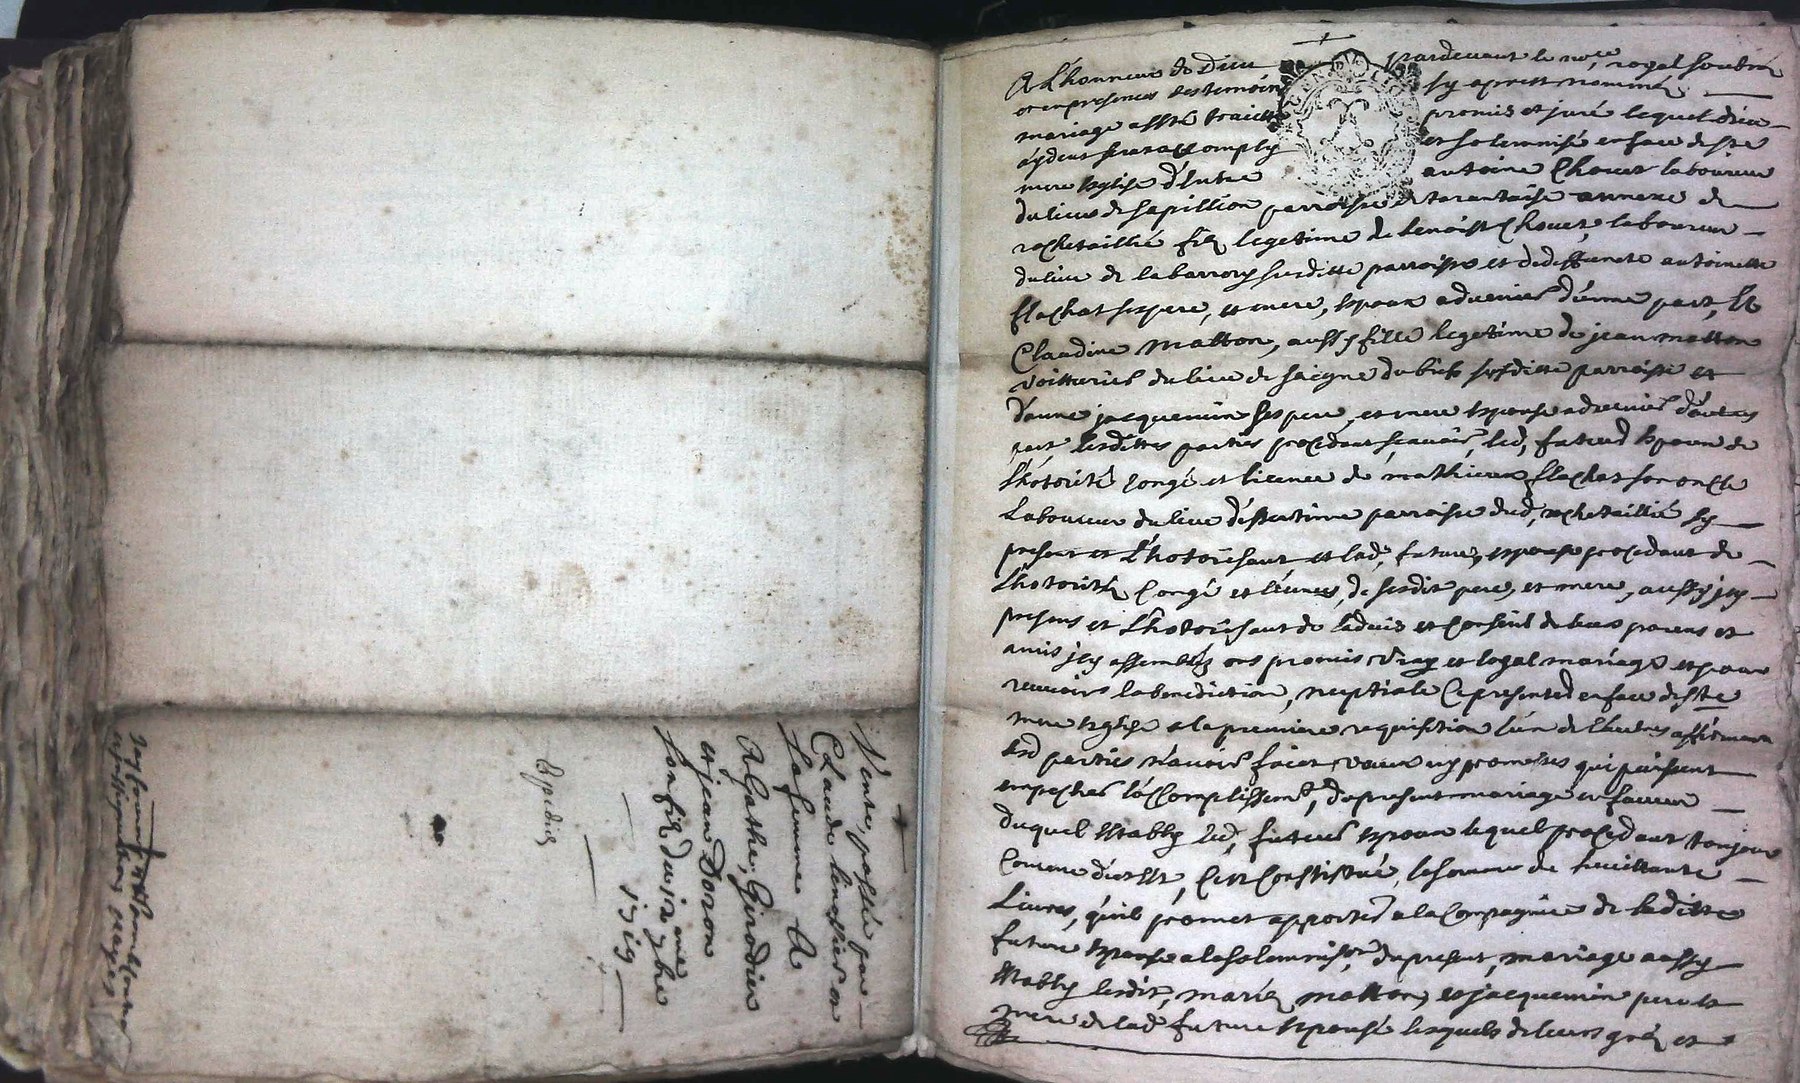 Vente, passée par
Claude
La femme A
Agathe, Girodier
et jean Doron
son fils du 12 xbre
1919
Expédié
A Lhonneur de Dieu pardevant le nore royal soubné
et en presences des temoins sy apres nommés
mariage a esté traicté promis et juré lequel dieu
aydent sera accomply et solemnisé en face de ste
mere Esglise d'Entre antoine Chovet laboureur
du lieu de Sapillion parroisse de tarantaise annexe de
rochetaillié fils legetime de benoist Chovet, laboureur
du lieu de la barrory susditte parroisse et de deffuncte antoinette
flachat ses pere, et mere, Epoux advenir d'une part, Et
Claudine Matton, aussy fille legetime de jean matton
voitturier du lieu de saigne du susditte parroisse et
d'anne jacquemin ses pere, et mere Epouse advenir d'autre
part, lesdittes parties procedant, scavoir, led, futeur Epoux de
Lhotorité congé et licence de mathieu flachat son oncle
Laboureur du lieu d'Essertinne parroisse dud, rochetaillié sy
present et Lhotorisant et lad, future, espouse procedant de
Lhotorité Congé et licence, de sesdit pere, et mere, aussy jcy
presens et Lhotorisant de l'advis et conseil de leurs parens et
amis jcy assemblés ont promis vray et loyal mariage et pour
recevoir la benediction, neuptiale Ce presenter en face de ste
mere Esglise a la premiere requisition l'un de lautres affirmant
lesd parties n'avoir faict vœux ny promesses qui puissent
empecher l'accomplissemt, du present mariage en faveur
duquel Estably led, futeur Epoux lequel procedant toujour
Comme dict Est, C'est Constistué, la somme de huictante
Livres, qu'il promet apporter a la Compagnie de laditte
future Epouse a la solemnison, du present, mariage aussy
Estably lesdit, mariés matton, et jacquemin pere et
mere de lad, future Epouse lesquels de leurs grés et